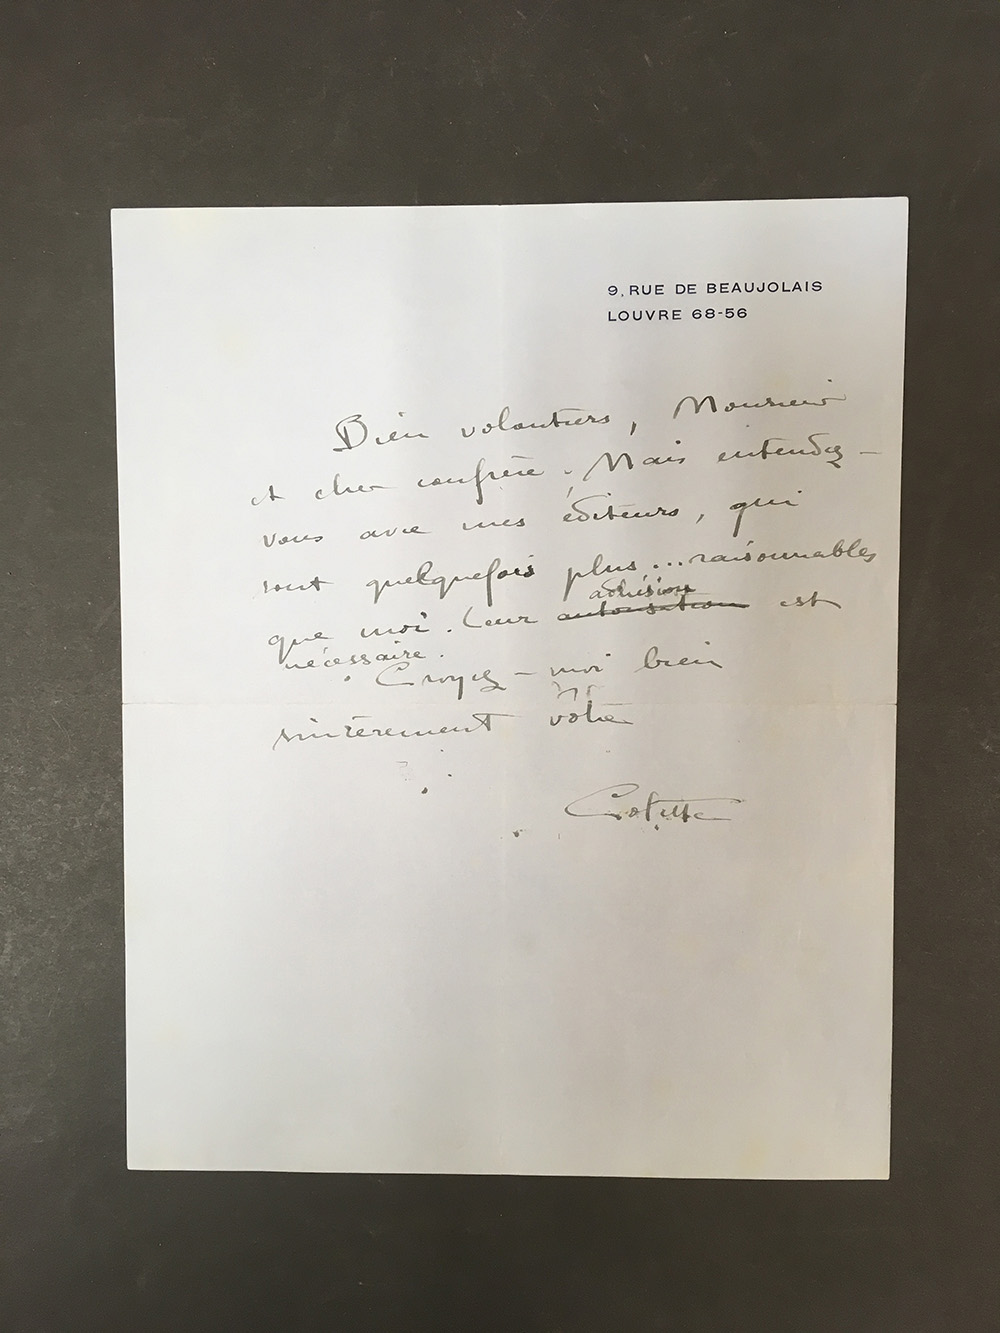 9, RUE DE BEAUJOLAIS
LOUVRE 68-56
Bien volontiers, Monsieur
et cher confrère. Mais entendez-
vous avec mes éditeurs, qui
sont quelquefois plus... raisonnables
adhésion
que moi. Leur autorisation est
nécessaire.
Croyez-moi bien
sincèrement vôtre
Colette